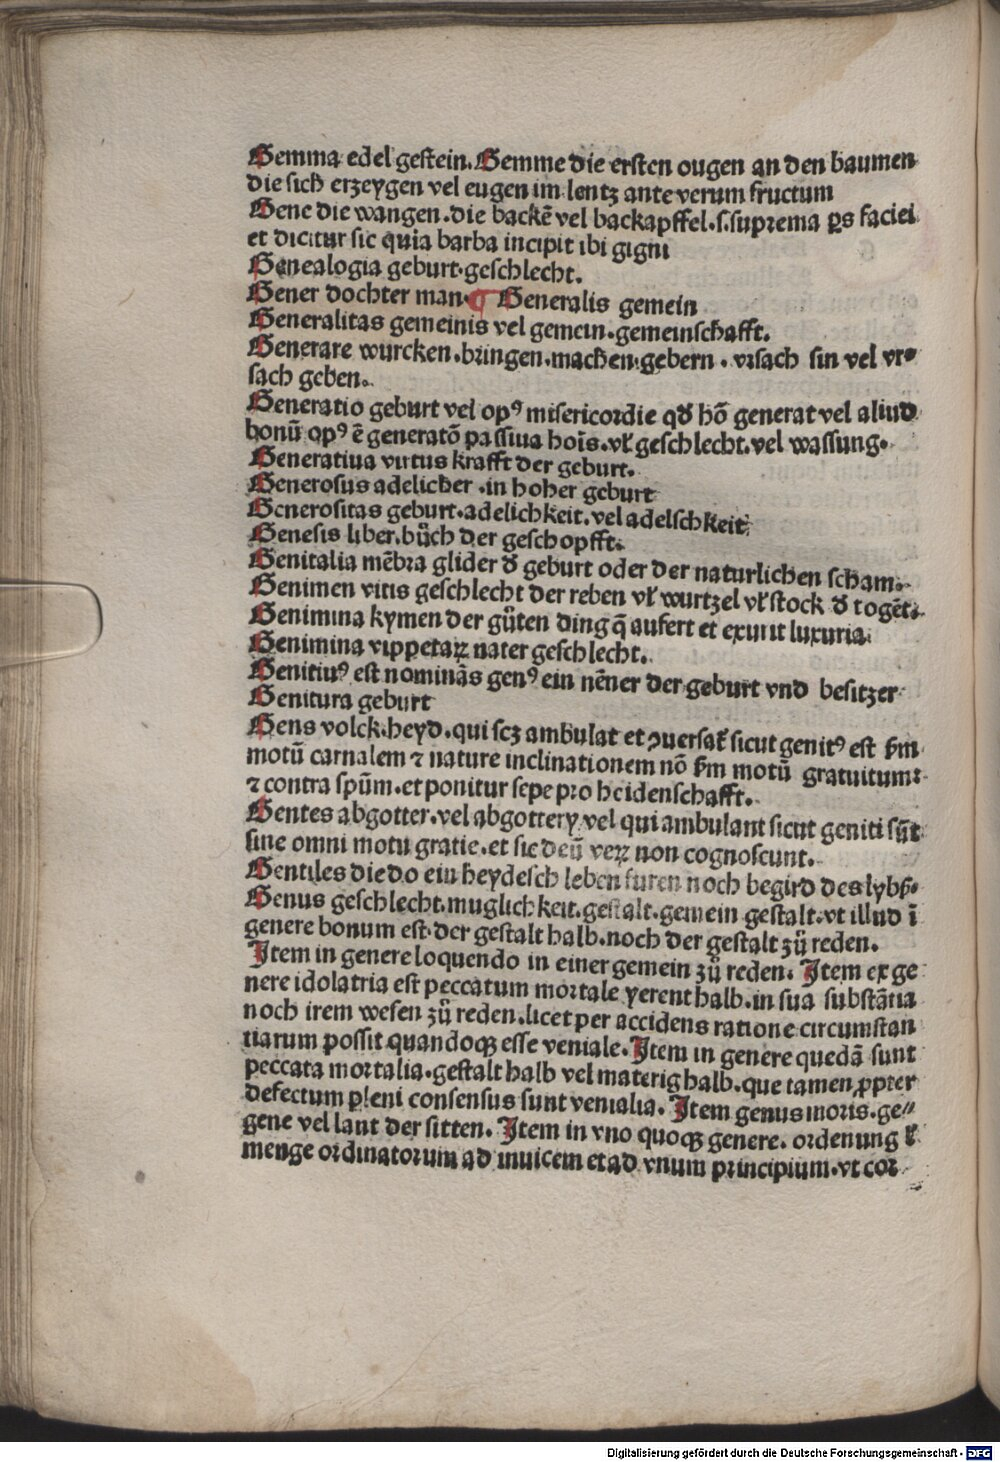 Gemma edel gestein. Gemme die ersten ougen an den baumen
die sich erzeygen vel eugen im lentz ante verum fructum
Gene die wangen. die backē vel backapffel. s. suprema ꝑs faciei
et dicitur sic quia barba incipit ibi gigni
Genealogia geburt. geschlecht.
Gener dochter man. ¶ Generalis gemein
Generalitas gemeinis vel gemein. gemeinschafft.
Generare wurcken. bringen. machen. gebern. vrsach sin vel vr⸗
sach geben.
Generatio geburt vel opꝰ misericordie qđ hō generat vel aliud
bonū opꝰ ē generatō passiua hoīs. vł geschlecht. vel wassung.
Generatiua virtus krafft der geburt.
Generosus adelicher. in hoher geburt
Generositas geburt. adelichkeit. vel adelschkeit.
Genesis liber. bůch der geschopfft.
Genitalia mēbra glider đ geburt oder der naturlichen scham.
Genimen vitis geschlecht der reben vł wurtzel vł stock đ togēt.
Genimina kymen der gůten ding q̄ aufert et exurit luxuria
Genimina vippetaꝝ nater geschlecht.
Genitiuꝰ est nominās genꝰ ein nēner der geburt vnd besitzer
Genitura geburt
Gens volck. heyd. qui scꝫ ambulat et ꝯuersat᷑ sicut genitꝰ est ẜm
motū carnalem ⁊ nature inclinationem nō ẜm motū gratuitum:
⁊ contra spūm. et ponitur sepe pro heidenschafft.
Gentes abgotter. vel abgottery vel qui ambulant sicut geniti sūt
sine omni motu gratie. et sic deū veꝝ non cognoscunt.
Gentiles die do ein heydesch leben furen noch begird des lybß.
Genus geschlecht. muglichkeit. gestalt. gemein gestalt. vt illud ī
genere bonum est. der gestalt halb. noch der gestalt zů reden.
Item in genere loquendo in einer gemein zů reden. Item ex ge
nere idolatria est peccatum mortale yerent halb. in sua substātia
noch irem wesen zů reden. licet per accidens ratione circumstan
tiarum possit quandoqꝫ esse veniale. Item in genere quedā sunt
peccata mortalia. gestalt halb vel materig halb. que tamen ꝓpter
defectum pleni consensus sunt venialia. Item genus moris. ge⸗
gene vel lant der sitten. Item in vno quoqꝫ genere. ordenung ł
menge ordinatorum ad inuicem et ad vnum principium. vt cor
Digitalisierung gefördert durch die Deutsche Forschungsgemeinschaft - DFG